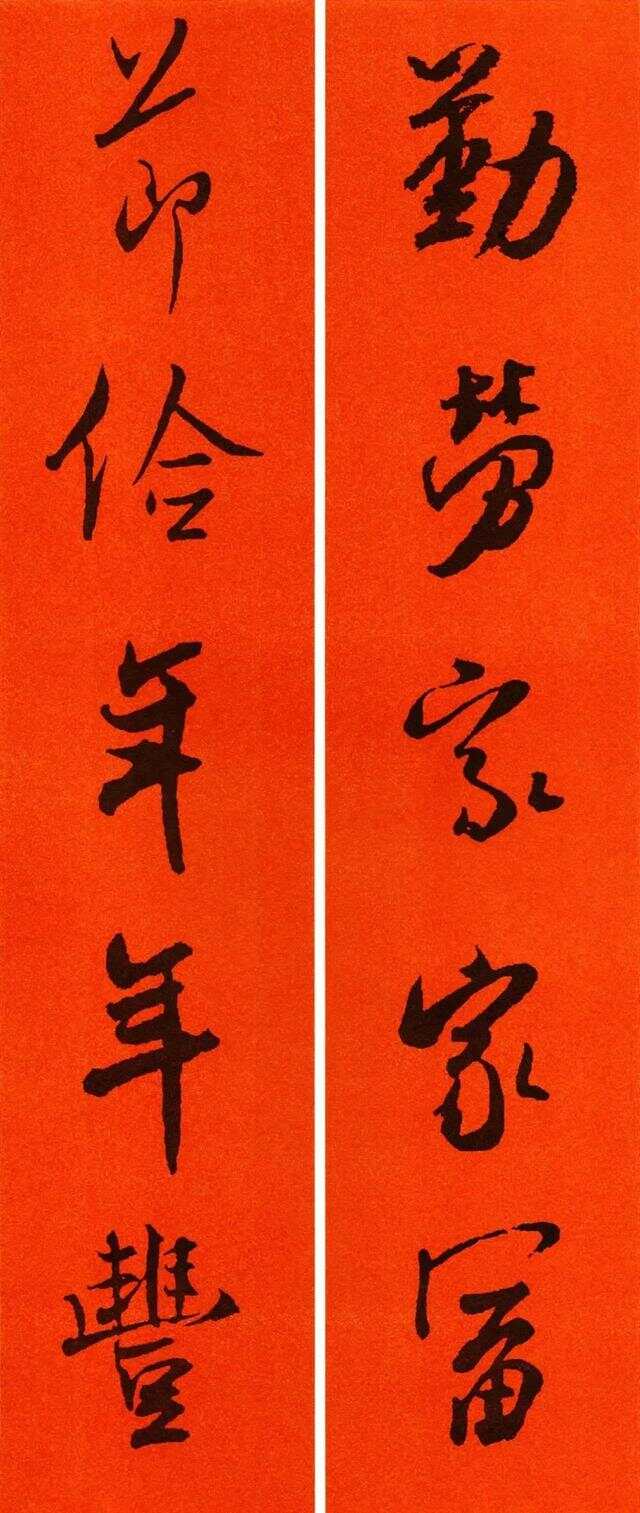 勤勞家家富
節儉年年豐